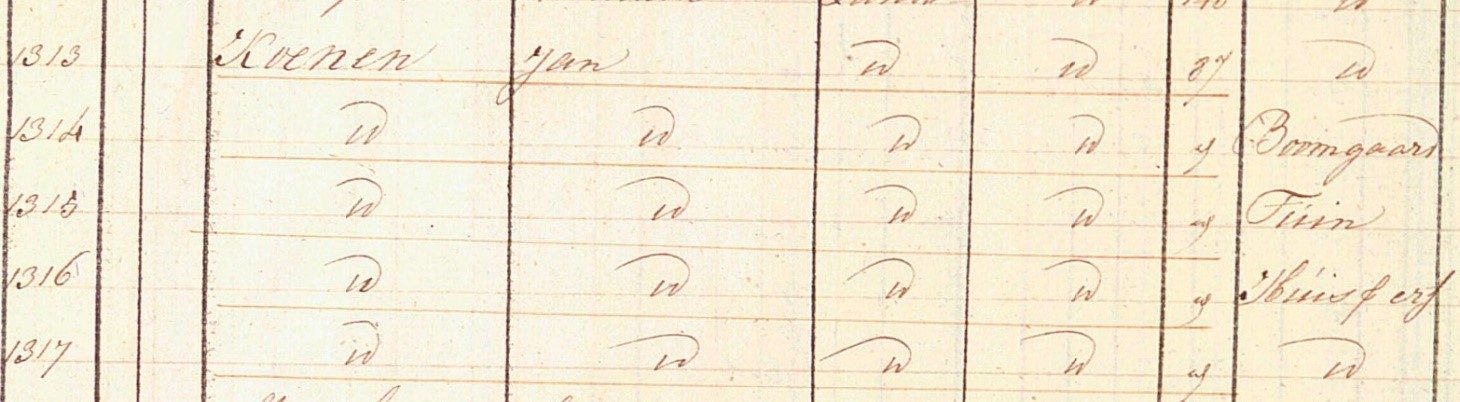 1313 Koenen Jan id id 87 id
1314 id id id id " Boomgaard
1315 id id id id " Tuin
1316 id id id id " Huis & erf
1317 id id id id " id